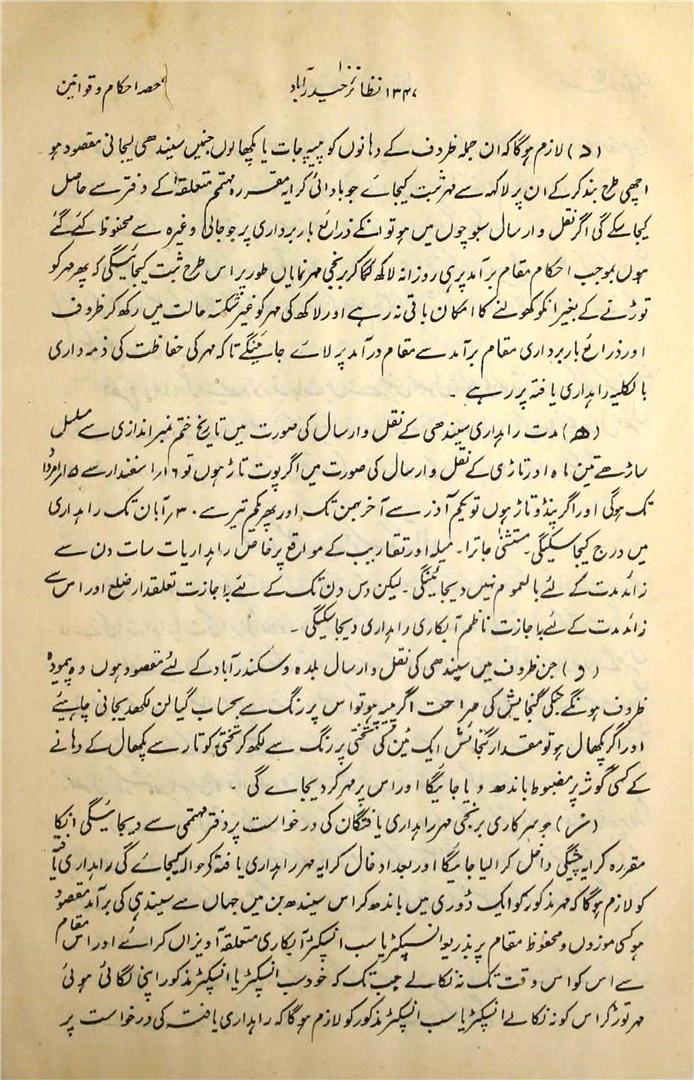 حصہ احکام و قوانین
۱۰
نظائر حیدرآباد ۱۳۴۷
(د) لازم ہوگا کہ ان جملہ ظروف کے دہانوں کو پیپہ جات یا کچھالوں جنمیں سیندھی لیجانی مقصود ہو
اچھی طرح بند کرکے ان پر لاکھہ سے مہر ثبت کیجائے جو بادائی کرایہ مقررہ مہتمم متعلقہ کے دفتر سے حاصل
کیجا سکے گی اگر نقل و ارسال سبوچوں میں ہو تو انکے ذرائع باربرداری پر جو جالی وغیرہ سے محفوظ کئے گئے
ہوں بموجب احکام مقام برآمد پر ہی روزانہ لاکھ لگا کر برنجی مہر نمایاں طور پر اس طرح ثبت کیجائیگی کہ پھر مہر کو
توڑنے کے بغیر انکو کھولنے کا امکان باقی نہ رہے اور لاکھ کی مہر کو غیر شکستہ حالت میں رکھ کر ظروف
اور ذرائع باربرداری مقام برآمد سے مقام درآمد پر لائے جائینگے تاکہ مہر کی حفاظت کی ذمہ داری
بالکلیہ راہداری یافتہ پر رہے ۔
(ھ) مدت راہداری سیندھی کے نقل و ارسال کی صورت میں تاریخ ختم نمبر اندازی سے مسلسل
ساڑھے تین ماہ اور تاڑی کے نقل و ارسال کی صورت میں اگر پوت تاڑ ہوں تو ۱۶ ر اسفندار سے ۱۵ ر امرداد
تک ہوگی اور اگر پنڈو تاڑ ہوں تو یکم آذر سے آخر بہمن تک اور پھر یکم تیر سے ۳۰ ر آبان تک راہداری
میں درج کیجا سکیگی۔ مستثنٰی جاترا۔ میلہ اور تقاریب کے مواقع پر خاص راہداریات سات دن سے
زائد مدت کے لئے بالعموم نہیں دیجائینگی ۔ لیکن دس دن تک کے لئے با جازت تعلقدار ضلع اور اس سے
زائد مدت کے لئے با جازت ناظم آبکاری راہداری دیجا سکیگی ۔
(و) جن ظروف میں سیندھی کی نقل و ارسال بلدہ و سکندرآباد کے لئے مقصود ہوں وہ پیمودہ
ظروف ہونگے جنکی گنجایش کی صراحت اگر پیپہ ہو تو اس پر رنگ سے بحساب گیالن لکھدیجانی چاہیئے
اور اگر کچھال ہو تو مقدار گنجائش ایک ٹین کی تختی پر رنگ سے لکھ کر تختی کو تار سے کچھال کے دہانے
کے کسی گوشہ پر مضبوط باندھ دیا جائیگا اور اس پر مہر کر دیجائے گی ۔
(ز) جو سرکاری برنجی مہر راہداری یافتگان کی درخواست پر دفتر مہتممی سے دیجائیگی انکا
مقررہ کرایہ پیشگی داخل کرالیا جائیگا اور بعد ادخال کرایہ مہر راہداری یافتہ کو حوالہ کیجائے گی راہداری یافتہ
کو لازم ہوگا کہ مہر مذکور کو ایک ڈوری میں باندھ کر اس سیندھ بن میں جہاں سے سیندہی کی برآمد مقصود
ہو کسی موزوں و محفوظ مقام پر بذریعہ انسپکٹر یا سب انسپکٹر آبکاری متعلقہ آویزاں کرائے اور اس مقام
سے اس کو اس وقت تک نہ نکالے جب تک کہ خود سب انسپکٹر یا انسپکٹر مذکور اپنی لگائی ہوئی
مہر توڑ کر اس کو نہ نکالے انسپکٹر یا سب انسپکٹر مذکور کو لازم ہوگا کہ راہداری یافتہ کی درخواست پر